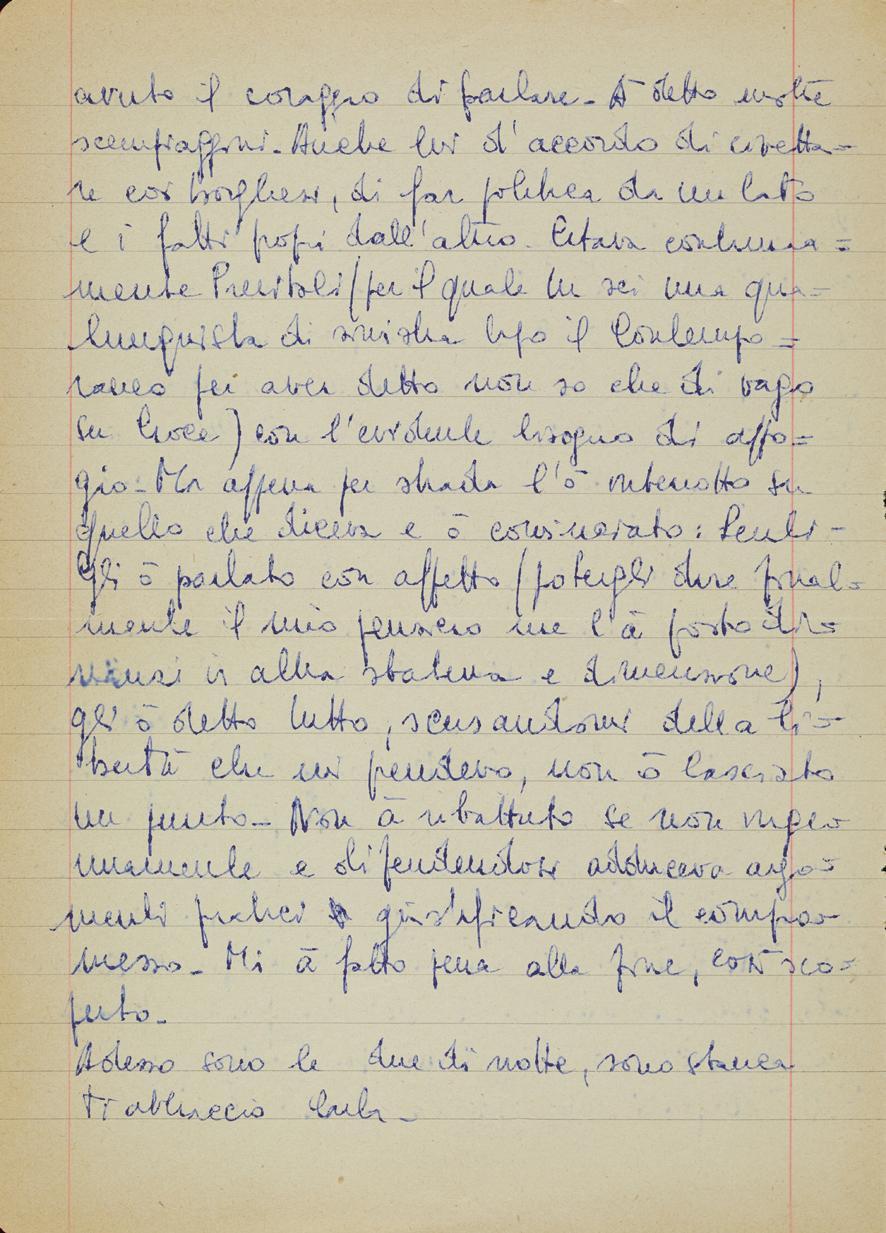 avuto il coraggio di parlare - À detto molte
scempiaggini - Anche lui d'accordo di civetta=
re coi borghesi, di far politica da un lato
e i fatti propri dall'altro. Citava continua=
mente (per il quale tu sei una qua=
lunquista di sinistra tipo il Contempo=
raneo per aver detto non so che di vago
su Croce) con l'evidente bisogno di appo=
gio - Ma appena per strada l'ò interrotto su
quello che diceva e ò cominciato: Senti -
Gli ò parlato con affetto (potergli dire final=
mente il mio pensiero me l'à posto di=
nanzi in altra statura e dimensione),
gli ò detto tutto, scusandomi della li=
bertà che mi prendevo, non ò lasciato
un punto - Non à ribattuto se non inge
nuamente e difendendosi adduceva argo=
menti pratici giustificando il compro
messo - Mi à fatto pena alla fine, così sco=
perto -
Adesso sono le due di notte, sono stanca
Ti abbraccio